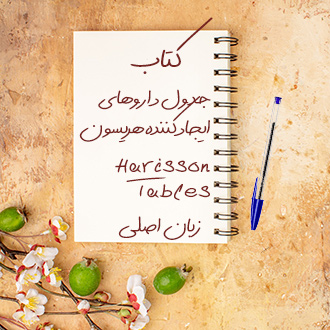 کتاب
جدول داروهای
ایجادکننده هریسون
Harisson
Tables
زبان اصلی